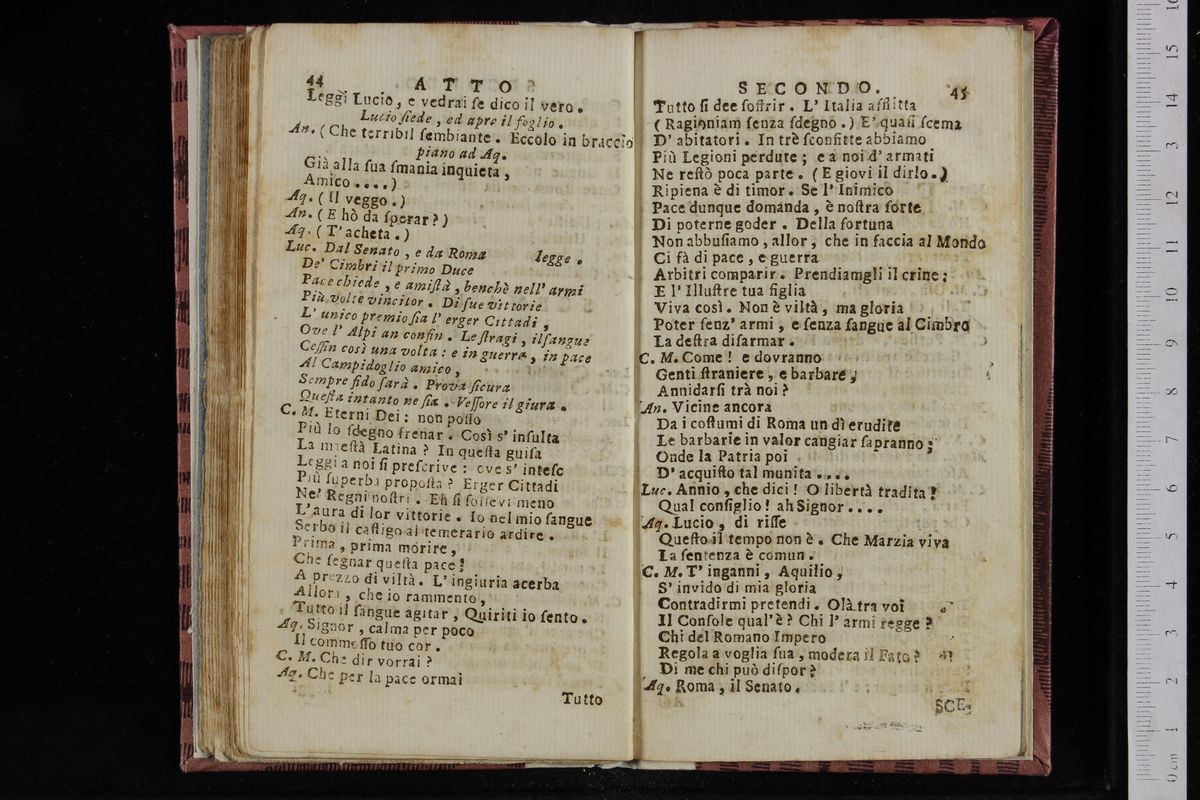 44 ATTO
Leggi Lucio, e vedrai ſe dico il vero.
Lucio ſiede, ed apre il foglio.
An. (Che terribil ſembiante. Eccolo in braccio
piano ad Aq.
Già alla ſua ſmania inquieta,
Amico....)
Aq. (Il veggo.)
An. (E hò da ſperar?)
Aq. (T'acheta.)
Luc. Dal Senato, e da Roma legge.
De' Cimbri il primo Duce
Pace chiede, e amiſtà, benchè nell' armi
Più volte vincitor. Di ſue vittorie
L' unico premio ſia l' erger Cittadi,
Ove l' Alpi an confin. Le ſtragi, il ſangue
Ceſſin così una volta: e in guerra, in pace
Al Campidoglio amico,
Sempre fido ſarà. Prova ſicura
Queſta intanto ne ſia. Veſſore il giura.
C. M. Eterni Dei: non poſſo
Più lo ſdegno frenar. Così s' inſulta
La maeſtà Latina? In queſta guiſa
Leggi a noi ſi preſcrive: ove s' inteſe
Più ſuperba propoſta? Erger Cittadi
Ne' Regni noſtri. Eh ſi ſollevi meno
L'aura di lor vittorie. Io nel mio ſangue
Serbo il caſtigo al temerario ardire.
Prima, prima morire,
Che ſegnar queſta pace!
A prezzo di viltà. L' ingiuria acerba
Allora, che io rammento,
Tutto il ſangue agitar, Quiriti io ſento.
Aq. Signor, calma per poco
Il commoſſo tuo cor.
C. M. Che dir vorrai?
Aq. Che per la pace ormai
Tutto
SECONDO. 45
Tutto ſi dee ſoffrir. L' Italia afflitta
(Ragioniam ſenza ſdegno.) E' quaſi ſcema
D' abitatori. In trè ſconfitte abbiamo
Più Legioni perdute; e a noi d' armati
Ne reſtò poca parte. (E giovi il dirlo.)
Ripiena è di timor. Se l' Inimico
Pace dunque domanda, è noſtra ſorte
Di poterne goder. Della fortuna
Non abbuſiamo, allor, che in faccia al Mondo
Ci fà di pace, e guerra
Arbitri comparir. Prendiamgli il crine;
E l' Illuſtre tua figlia
Viva così. Non è viltà, ma gloria
Poter ſenz' armi, e ſenza ſangue al Cimbro
La deſtra diſarmar.
C. M. Come! e dovranno
Genti ſtraniere, e barbare,
Annidarſi trà noi?
An. Vicine ancora
Da i coſtumi di Roma un dì erudite
Le barbarie in valor cangiar ſapranno;
Onde la Patria poi
D' acquiſto tal munita....
Luc. Annio, che dici! O libertà tradita!
Qual conſiglio! ah Signor....
Aq. Lucio, di riſſe
Queſto il tempo non è. Che Marzia viva
La ſentenza è comun.
C. M. T' inganni, Aquilio,
S' invido di mia gloria
Contradirmi pretendi. Olà tra voi
Il Conſole qual'è? Chi l' armi regge?
Chi del Romano Impero
Regola a voglia ſua, modera il Fato?
Di me chi può diſpor?
Aq. Roma, il Senato.
SCE-
0 cm 1 2 3 4 5 6 7 8 9 10 11 12 13 14 15